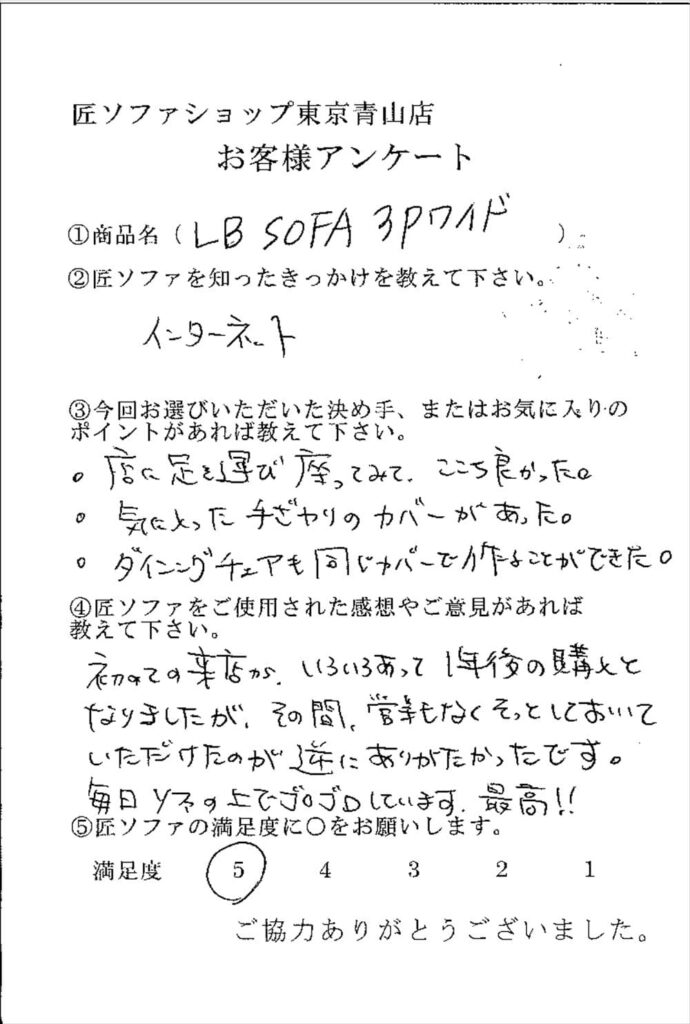 匠ソファショップ東京青山店
お客様アンケート
①商品名（LB SOFA 3Pワイド）
②匠ソファを知ったきっかけを教えて下さい。
インターネット
③今回お選びいただいた決め手、またはお気に入りの
ポイントがあれば教えて下さい。
。店に足を運び座ってみて、ここち良かった。
。気に入った手ざわりのカバーがあった。
。ダイニングチェアも同じカバーで作ることができた。
④匠ソファをご使用された感想やご意見があれば
教えて下さい。
初めての来店から、いろいろあって1年後の購入と
なりましたが、その間、営業もなくそっとしておいて
いただけたのが逆にありがたかったです。
毎日ソファの上でゴロゴロしています。最高!!
⑤匠ソファの満足度に〇をお願いします。
満足度 5 4 3 2 1
ご協力ありがとうございました。